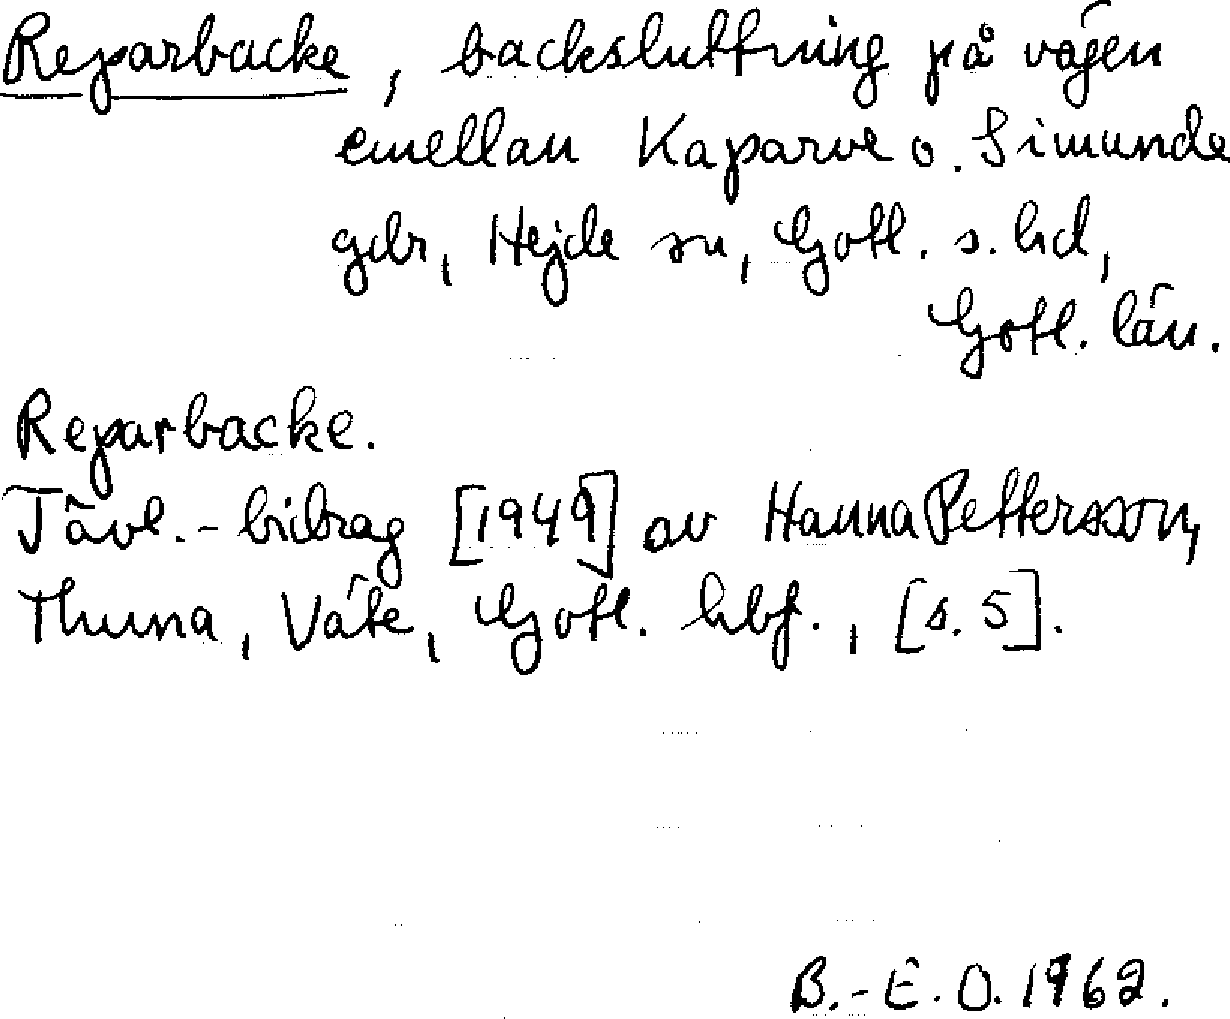 Reparbacke, backsluttning på vägen
emellan Kaparve o. Simunde
gdr, Hejde sn, Gotl. s. hd,
Gotl. län.
Reparbacke.
Tävl.-bidrag [1949] av Hanna Pettersson,
Thuna, Väte, Gotl. hbf., [s. 5].
B.-E. O. 1962.